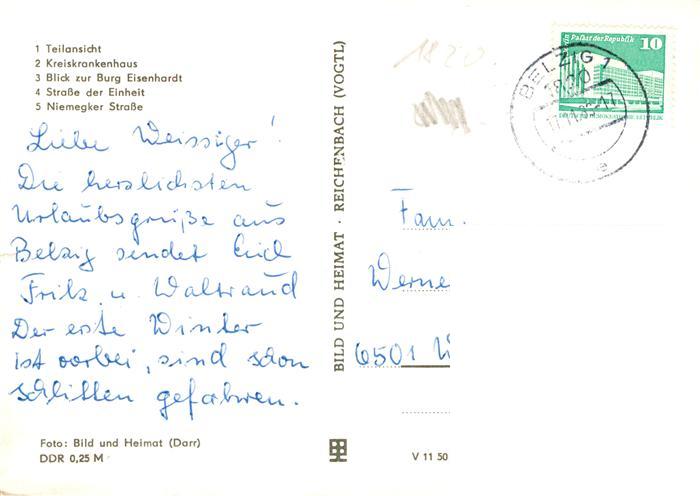 1 Teilansicht
2 Kreiskrankenhaus
3 Blick zur Burg Eisenhardt
4 Straße der Einheit
5 Niemegker Straße
Liebe Weissiger!
Die herslichsten
Urlaubsgrüße aus
Belzig sendet Euch
Fritz u. Waltraud
Der erste Winter
ist vorbei, sind schon
schlitten gefahren.
Foto: Bild und Heimat (Darr)
DDR 0,25 M
BILD UND HEIMAT · REICHENBACH (VOGTL)
V 11 50
1820
Palast der Republik
10
DEUTSCHE DEMOKRATISCHE REPUBLIK
BELZIG 1
1820
e
Fam.
Werne
6501